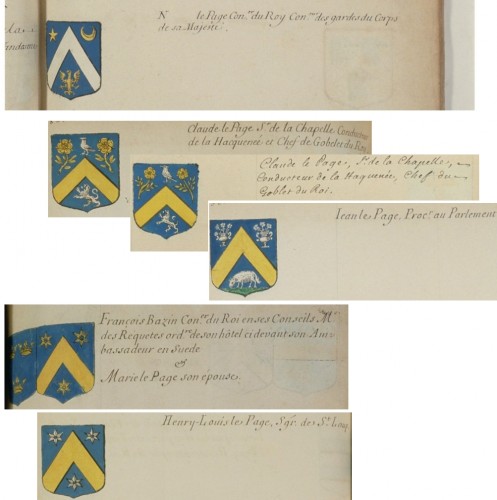 la
tendant
N le Page Con.er du Roy Con.er des gardes du Corps
de sa Majesté.
Claude le Page S.r de la Chapelle Conducteur
de la Hacquenée et Chef de Gobelet du Roy
Claude le Page, S.r de la Chapelle,
Conducteur de la Haquenée, Chef du
Goblet du Roi.
Jean le Page, Proc.r au Parlement
François Bazin Con.er du Roi en ses Conseils M.e
des Requetes ord.re de son hôtel ci devant son Am
bassadeur en Suede
&
Marie le Page son épouse.
Henry-Louis le Page, Sgr. des St. Loup